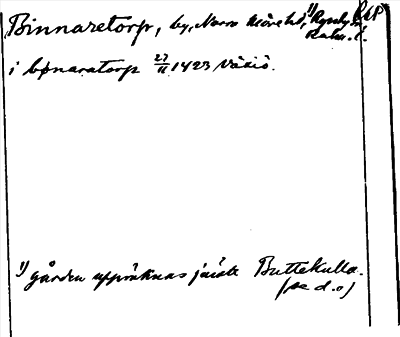 Binnaretorp, by, Norra Möre hd, ¹) Ryssby sn
Kalm. l.
i bønaratorp 27/11 1423 Växiö.
¹) gården uppräknas jämte Buttekulla.
(se d. o)